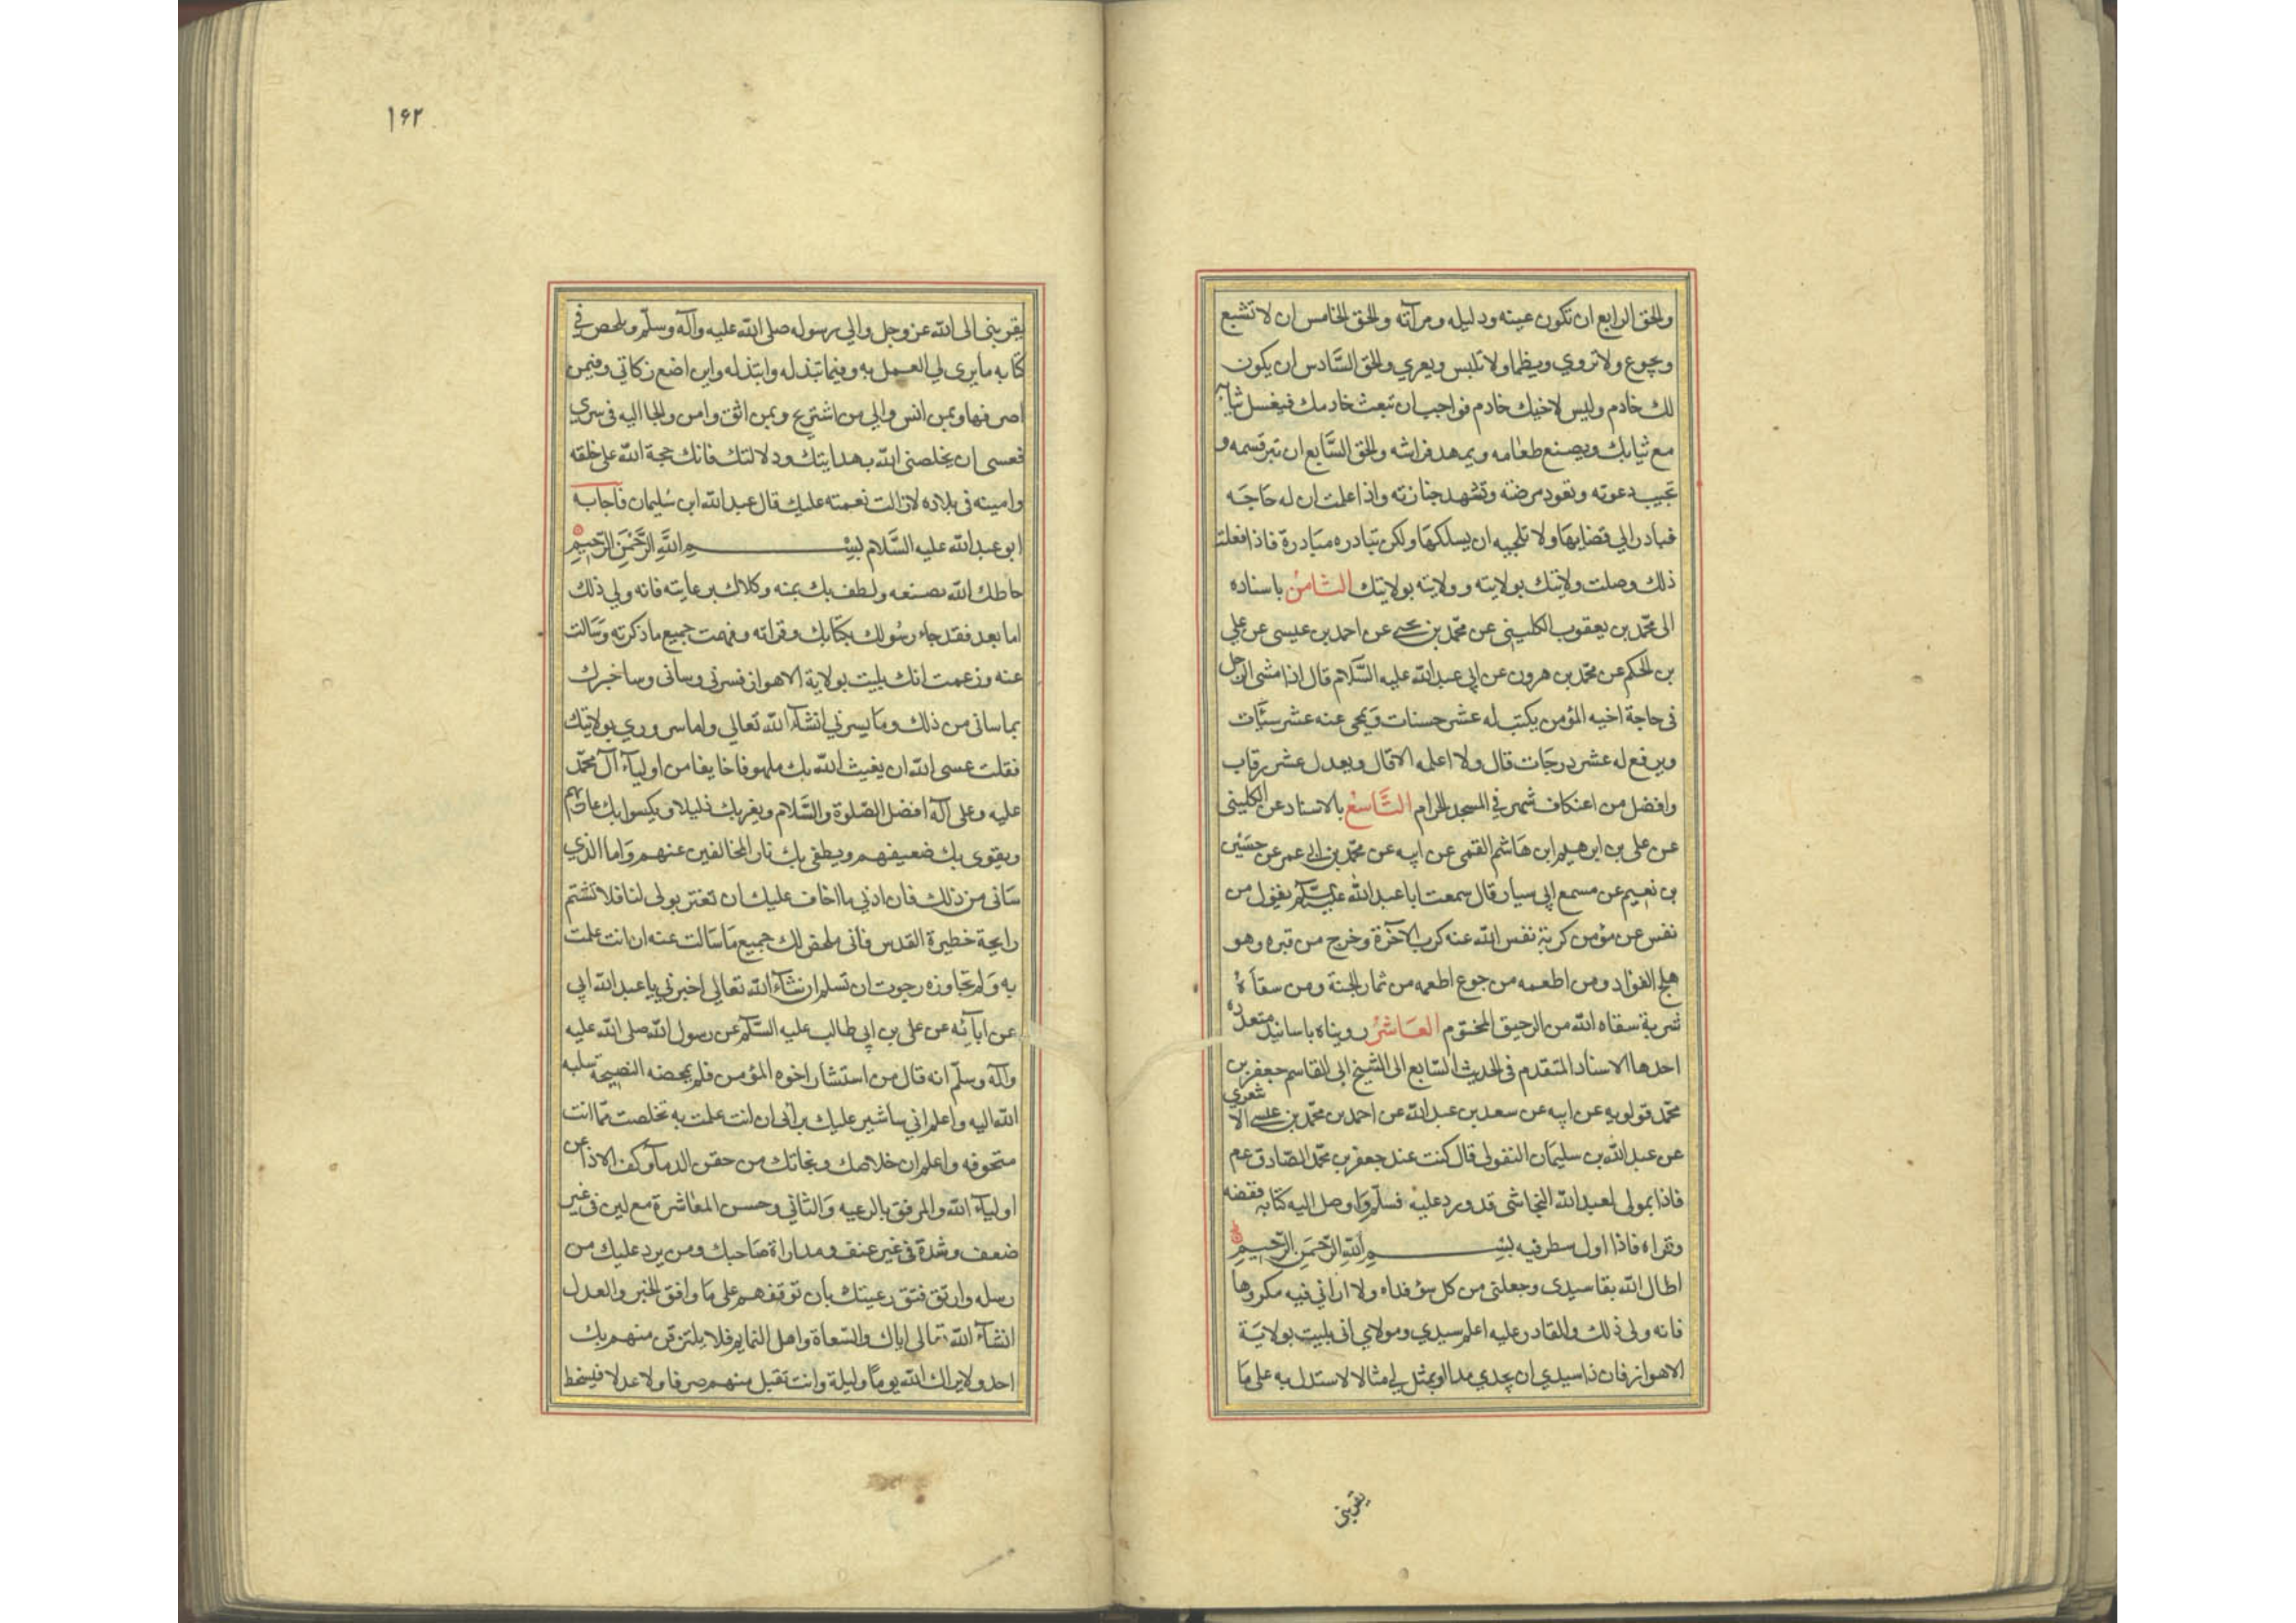 والحق الرابع ان تكون عينه ودليله ومرآته والحق الخامس ان لا تشبع
ويجوع ولا تروي ويظما ولا تلبس ويعري والحق السادس ان يكون
لك خادم وليس لاخيك خادم فواجب ان تبعث خادمك فيغسل ثيابه
مع ثيابك ويصنع طعامه ويمهد فراشه والحق السابع ان تبر قسمه و
تجيب دعوته وتعود مرضته وتشهد جنازته واذا علمت ان له حاجه
فبادر الي قضايها ولا تلجيه ان يسلكها ولكن تبادره مبادرة فاذا فعلت
ذلك وصلت ولايتك بولايته وولايته بولايتك الثامن باسناده
الى محمد بن يعقوب الكليني عن محمد بن يحيى عن احمد بن عيسى عن علي
بن الحكم عن محمد بن هرون عن ابي عبد الله عليه السلام قال اذا مشى الرجل
في حاجة اخيه المؤمن يكتب له عشر حسنات ويمحى عنه عشر سيئات
ويرفع له عشر درجات قال ولا اعلمه الا قال ويعدل عشر رقاب
وافضل من اعتكاف شهر في المسجد الحرام التاسع بالاسناد عن الكليني
عن على بن ابرهيم ابن هاشم القمى عن ابيه عن محمد بن ابي عمر عن حسين
بن نعيم عن مسمع ابي سيار قال سمعت ابا عبد الله عليه السلام يقول من
نفس عن مؤمن كربة نفس الله عنه كرب الآخرة وخرج من قبره وهو
هلج الفؤاد ومن اطعمه من جوع اطعمه من ثمار الجنة ومن سقاه
شربة سقاه الله من الرحيق المختوم العاشر رويناه باسانيد متعدده
احدها الاسناد المتقدم في الحديث السابع الى الشيخ ابي القاسم جعفر بن
محمد قولويه عن ابيه عن سعد بن عبد الله عن احمد بن محمد بن عيسى الاشعري
عن عبد الله بن سليمان النفولى قال كنت عند جعفر بن محمد الصادق عم
فاذا بمولى لعبد الله النجاشى قد ورد عليه فسلم واوصل اليه كتابه فقضه
وقراه فاذا اول سطر فيه بسم الله الرحمن الرحيم
اطال الله بقا سيدى وجعلنى من كل سؤ فداه ولا اراني فيه مكروها
فانه ولى ذلك والقادر عليه اعلم سيدي ومولاي انى بليت بولاية
الاهواز فان ذا سيدي ان يحدي مدا او يمثل لي مثالا لاستدل به على ما
يقربنى
١٦٢
يقربنى الى الله عز وجل والي رسوله صلى الله عليه وآله وسلم ويلحص في
كتابه ما يرى لي العمل به وفيما تبذله وابتذله واين اضع زكاتي وفيمن
اصرفها وبمن انس والي من اشتريح وبمن اثق وامن والجا اليه في سري
فعسى ان يخلصنى الله بهدايتك ودلالتك فانك حجة الله على خلقه
وامينه في بلاده لا زالت نعمته عليك قال عبد الله ابن سليمان فاجابه
ابو عبد الله عليه السلام بسم الله الرحمن الرحيم
حاطك الله بصنعه ولطف بك بمنه وكلاك برعايته فانه ولي ذلك
اما بعد فقد جاء رسولك بكتابك وقراته وفهمت جميع ما ذكرته وسالت
عنه وزعمت انك بليت بولاية الاهواز فسرني وسانى وساخبرك
بما سانى من ذلك وما يسرني انشآ الله تعالي واما سروري بولايتك
فقلت عسى الله ان يغيث الله بك ملهوفا خايفا من اولياء آل محمد
عليه وعلى آله افضل الصلوة والسلام ويغربك ذليلا ويكسوا بك عاريهم
ويقوى بك ضعيفهم ويطفى بك نار المخالفين عنهم واما الذي
سانى من ذلك فان ادني ما اخاف عليك ان تغتر بولى لنا فلا تشتم
رايحة خطيرة القدس فانى ملخص لك جميع ما سالت عنه ان انت علمت
به ولم تجاوزه رجوت ان تسلم ان نشآء الله تعالي اخبرني يا عبد الله ابي
عن ابائه عن على بن ابي طالب عليه السلام عن رسول الله صلى الله عليه
وآله وسلم انه قال من استشار اخوه المؤمن فلم يمحضه النصيحة سلبه
الله اليه واعلم اني ساشير عليك براي ان انت علمت به تخلصت مما انت
متحوفه واعلم ان خلاصك ونجاتك من حقن الدما وكف الاذا عن
اولياء الله والرفق بالرعيه والتاني وحسن المعاشرة مع لين في غير
ضعف وشدة في غير عنف ومداراة صاحبك ومن يرد عليك من
رسله وارتق فتق رعيتك بان توقفهم على ما وافق الخبر والعدل
انشآء الله تعالي اياك والسعاة واهل النمايم فلا يلتزقن منهم بك
احد ولا يراك الله يوما وليلة وانت تقبل منهم صرفا ولا عدلا فيسخط